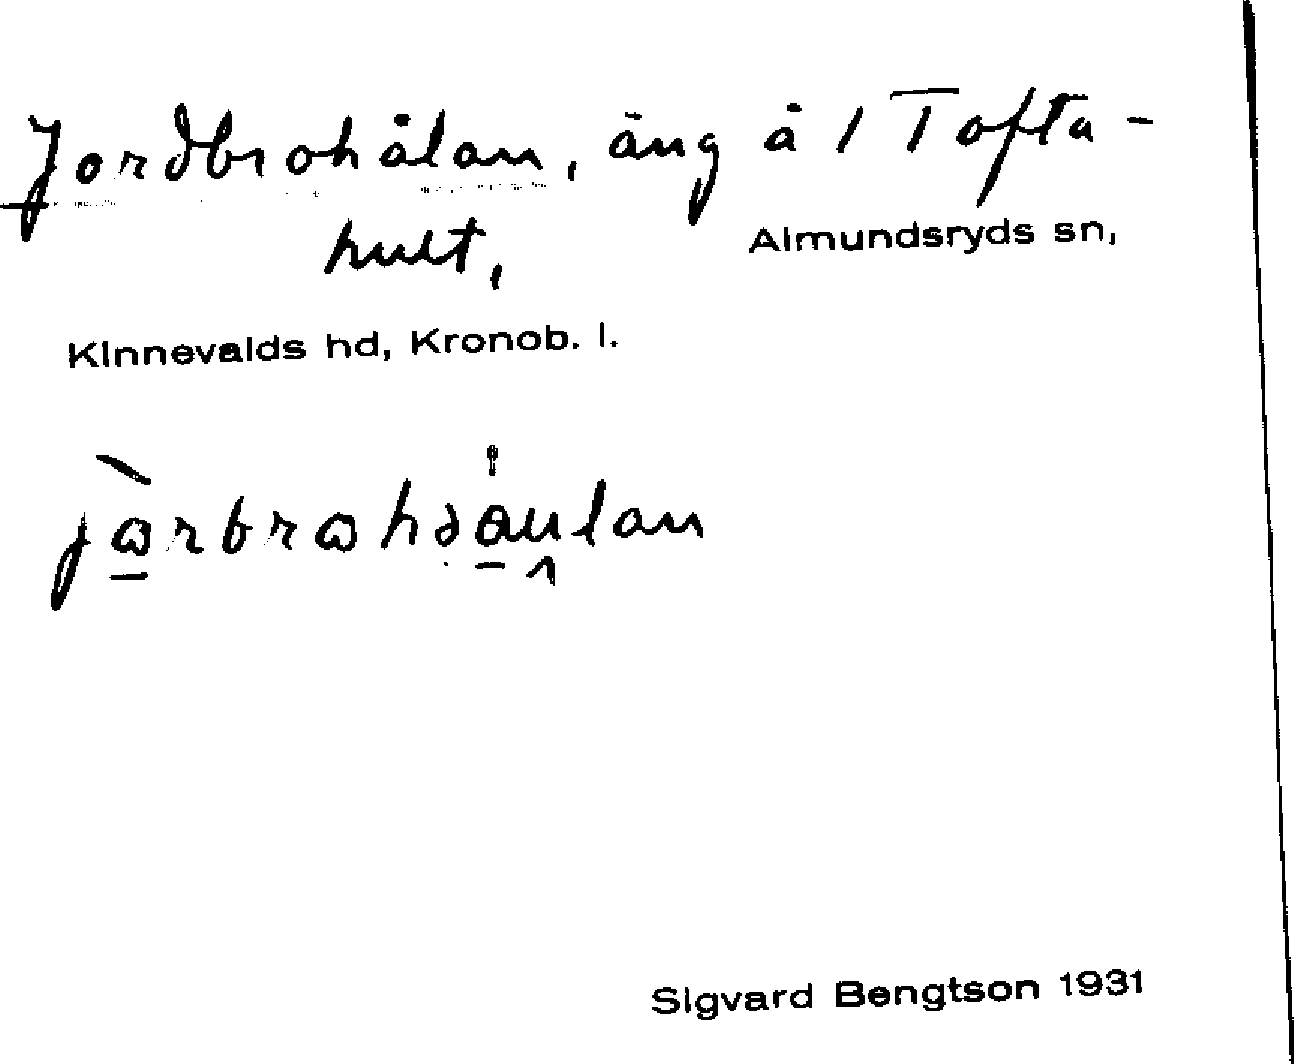 Jordbrohålan, äng å 1 Tofta-
hult,
Almundsryds sn,
Kinnevalds hd, Kronob. l.
Sigvard Bengtson 1931